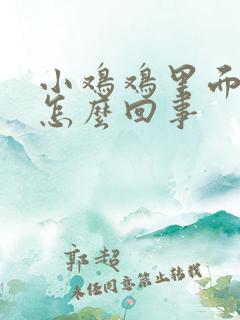 小鸡鸡里面
怎麽回事
郭超
未经同意禁止转载